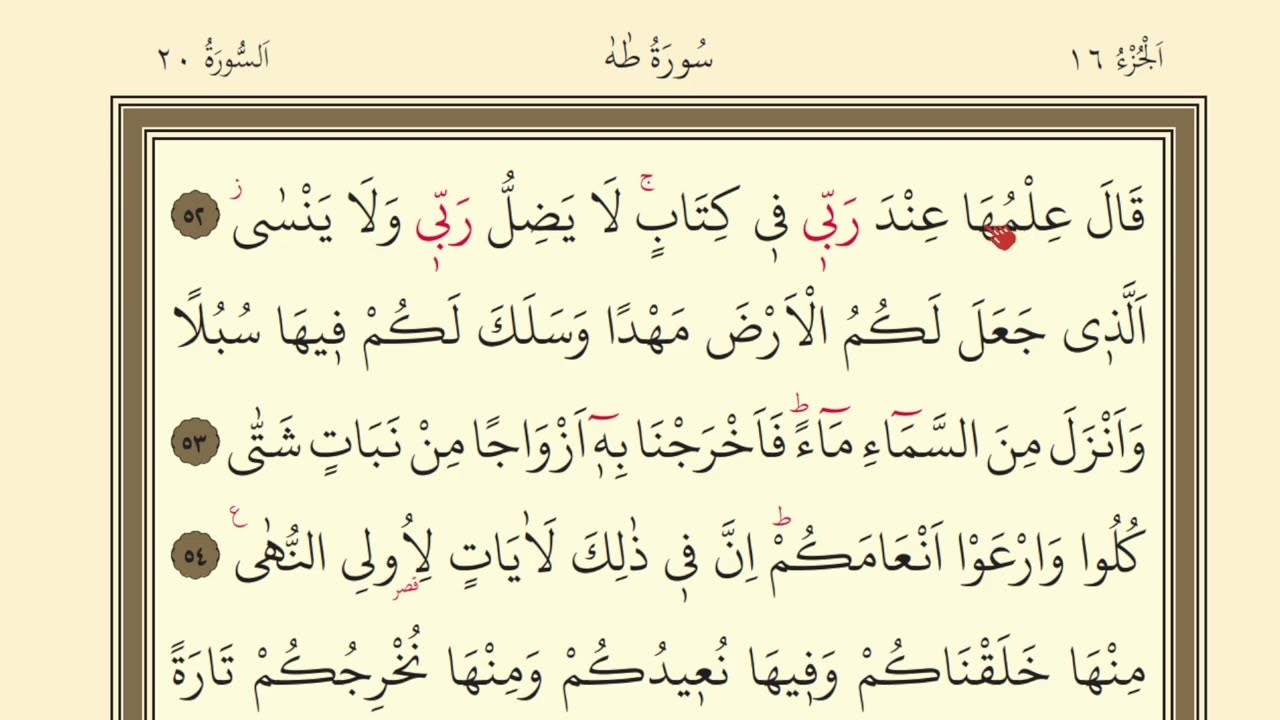 اَلْجُزْءُ ١٦ سُورَةُ طٰهٰ اَلسُّورَةُ ٢٠
قَالَ عِلْمُهَا عِنْدَ رَبّ۪ي ف۪ي كِتَابٍۚ لَا يَضِلُّ رَبّ۪ي وَلَا يَنْسٰىۘ ٥٢
اَلَّذ۪ى جَعَلَ لَكُمُ الْاَرْضَ مَهْدًا وَسَلَكَ لَكُمْ ف۪يهَا سُبُلًا
وَاَنْزَلَ مِنَ السَّمَٓاءِ مَٓاءًۜ فَاَخْرَجْنَا بِه۪ٓ اَزْوَاجًا مِنْ نَبَاتٍ شَتّٰى ٥٣
كُلُوا وَارْعَوْا اَنْعَامَكُمْۜ اِنَّ ف۪ي ذٰلِكَ لَاٰيَاتٍ لِاُولِى النُّهٰى۟ ٥٤
قصر
مِنْهَا خَلَقْنَاكُمْ وَف۪يهَا نُع۪يدُكُمْ وَمِنْهَا نُخْرِجُكُمْ تَارَةً